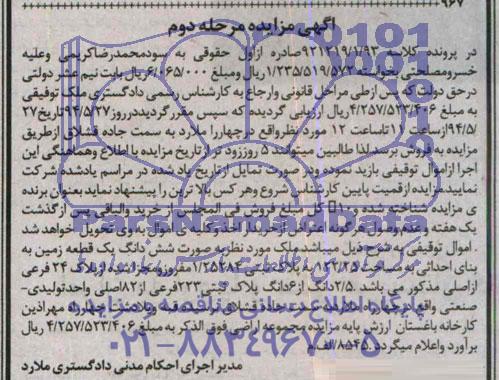 ۹۶۷
آگهی مزایده مرحله دوم
در پرونده کلاسه ۹۲۱۲۱۹/۱/۹۳ صادره ازاول حقوقی به سودمحمدرضاکریمی وعلیه
خسرومصلحتی بخواسته ۱/۲۳۵/۵۱۹/۵۷۲ریال ومبلغ ۶/۰۶۵/۰۰۰ریال بابت نیم عشر دولتی
درحق دولت که پس ازطی مراحل قانونی وارجاع به کارشناس رسمی دادگستری ملک توقیفی
به مبلغ ۴/۲۵۷/۵۲۳/۴۰۶ ریال ارزیابی گردیده که سپس مقرر گردیددرروز
۹۴/۵/ ازساعت ۱۱ تاساعت ۱۲ موردنظرواقع درچهارراه ملارد به سمت جاده قشلاق ازطریق
مزایده به فروش برسد.لذا طالبین میتوانند ۵ روززود تر از تاریخ مزایده با اطلاع وهماهنگی این
اجرا ازاموال توقیفی بازید نموده ودر صورت تمایل ازتاریخ یاد شده در مراسم یادشده شرکت
نمایید.مزایده ازقیمت پایین کارشناسی شروع وهر کس بالا ترین را پیشنهاد نماید بعنوان برنده
ی مزایده شناخته شده و۱۰ کل مبلغ فروش فی المجلس از خرید والباقی پس از گذشت
یک هفته وعدم وصول هرگونه اعتراض ازخریدار اخذوکلیه ی اموال به وی تحویل خواهد شد
. اموال توقیفی به شرح ذیل میباشد ملک مورد نظر به صورت شش دانگ یک قطعه زمین به
بنای احداثی به مساحت به پلاک ثبتی مفروزه مجزا شده از پلاک ۲۴ فرعی
ازاصلی مذکور می باشد .۲/۵دانگ از۶دانگ پلاک ثبتی۲۲۳فرعی از۸۲اصلی واحدتولیدی-
صنعتی واقع چهارراه قشلاق چهارراه مهراذین
کارخانه باغستان ارزش پایه مزایده مجموعه اراضی فوق الذکر به مبلغ ۴/۲۵۷/۵۲۳/۴۰۶ ریال
برآورد واعلام میگردد.۸۵۴۵/الف م
مدیر اجرای احکام مدنی دادگستری ملارد
پایگاه اطلاع رسانی مناقصه و مزایده
۰۲۱-۸۸۳۴۹۶۷۰-۵